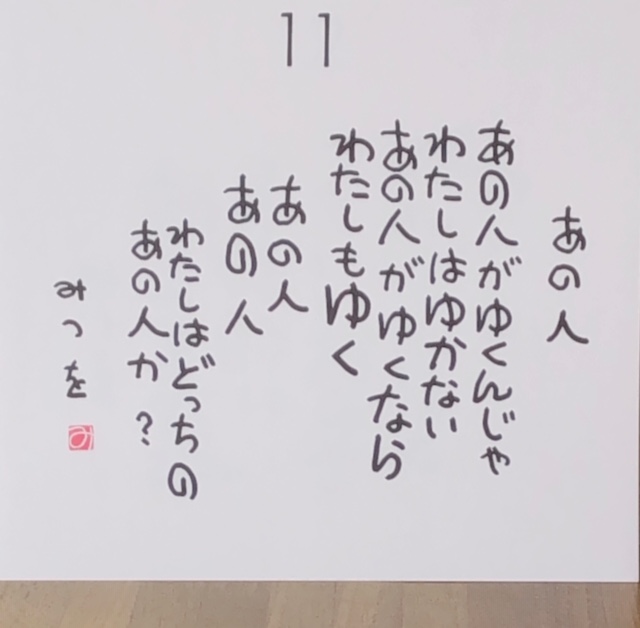 11
あの人
あの人がゆくんじゃ
わたしはゆかない
あの人がゆくなら
わたしもゆく
あの人
あの人
わたしはどっちの
あの人か?
みつを
み